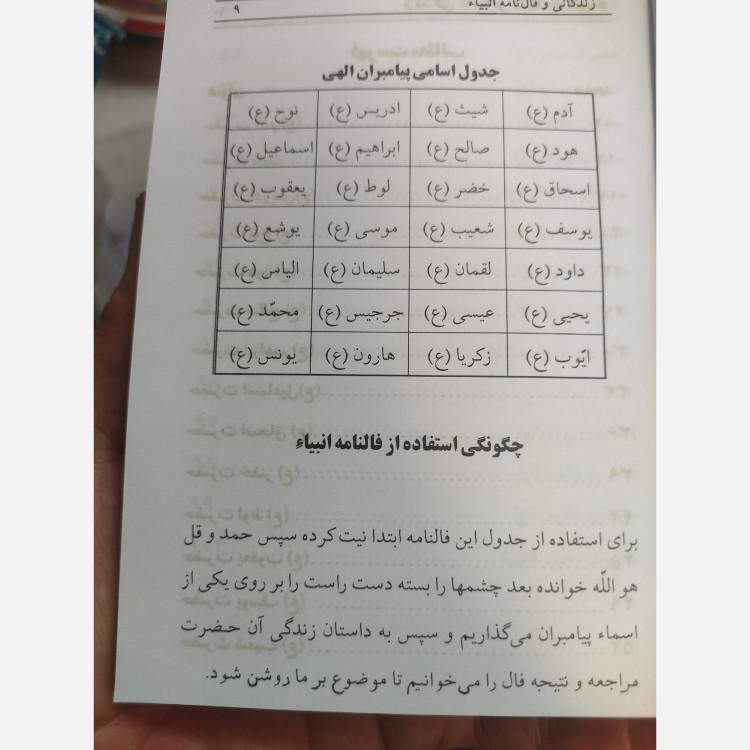 زندگانی و فال‌نامه انبیاء ۹
جدول اسامی پیامبران الهی
آدم (ع) شیث (ع) ادریس (ع) نوح (ع)
هود (ع) صالح (ع) ابراهیم (ع) اسماعیل (ع)
اسحاق (ع) خضر (ع) لوط (ع) یعقوب (ع)
یوسف (ع) شعیب (ع) موسی (ع) یوشع (ع)
داود (ع) لقمان (ع) سلیمان (ع) الیاس (ع)
یحیی (ع) عیسی (ع) جرجیس (ع) محمّد (ع)
ایّوب (ع) زکریا (ع) هارون (ع) یونس (ع)
چگونگی استفاده از فالنامه انبیاء
برای استفاده از جدول این فالنامه ابتدا نیت کرده سپس حمد و قل
هو اللّه خوانده بعد چشمها را بسته دست راست را بر روی یکی از
اسماء پیامبران می‌گذاریم و سپس به داستان زندگی آن حضرت
مراجعه و نتیجه فال را می‌خوانیم تا موضوع بر ما روشن شود.